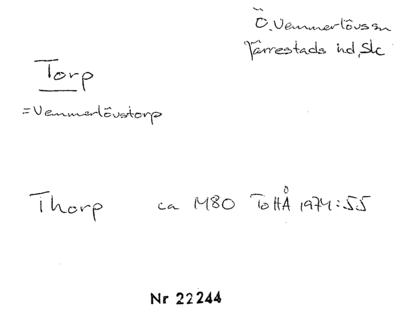 Ö. Vemmerlövs sn
Järrestads hd, Sk
Torp
= Vemmerlövstorp
Thorp ca 1480 ToHÅ 1974:55
Nr 22244